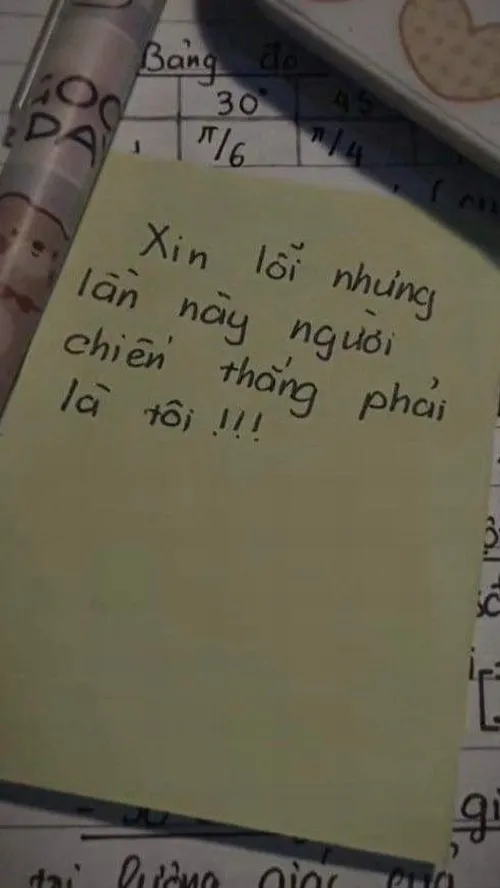 Bảng đo
30° 45
π/6 π/4
Xin lỗi nhưng
lần này người
chiến thắng phải
là tôi !!!
gi
lượng giác của